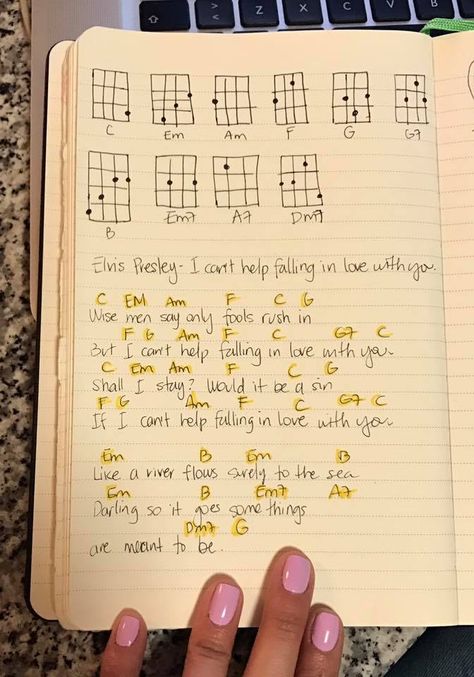 Z X C V B N M
C Em Am F G G7
B Em7 A7 Dm7
Elvis Presley - I can't help falling in love with you.
C EM Am F C G
Wise men say only fools rush in
F G Am F C G7 C
But I can't help falling in love with you.
C Em Am F C G
Shall I stay? Would it be a sin
F G Am F C G7 C
If I can't help falling in love with you
Em B Em B
Like a river flows surely to the sea
Em B Em7 A7
Darling so it goes some things
Dm7 G
are meant to be.